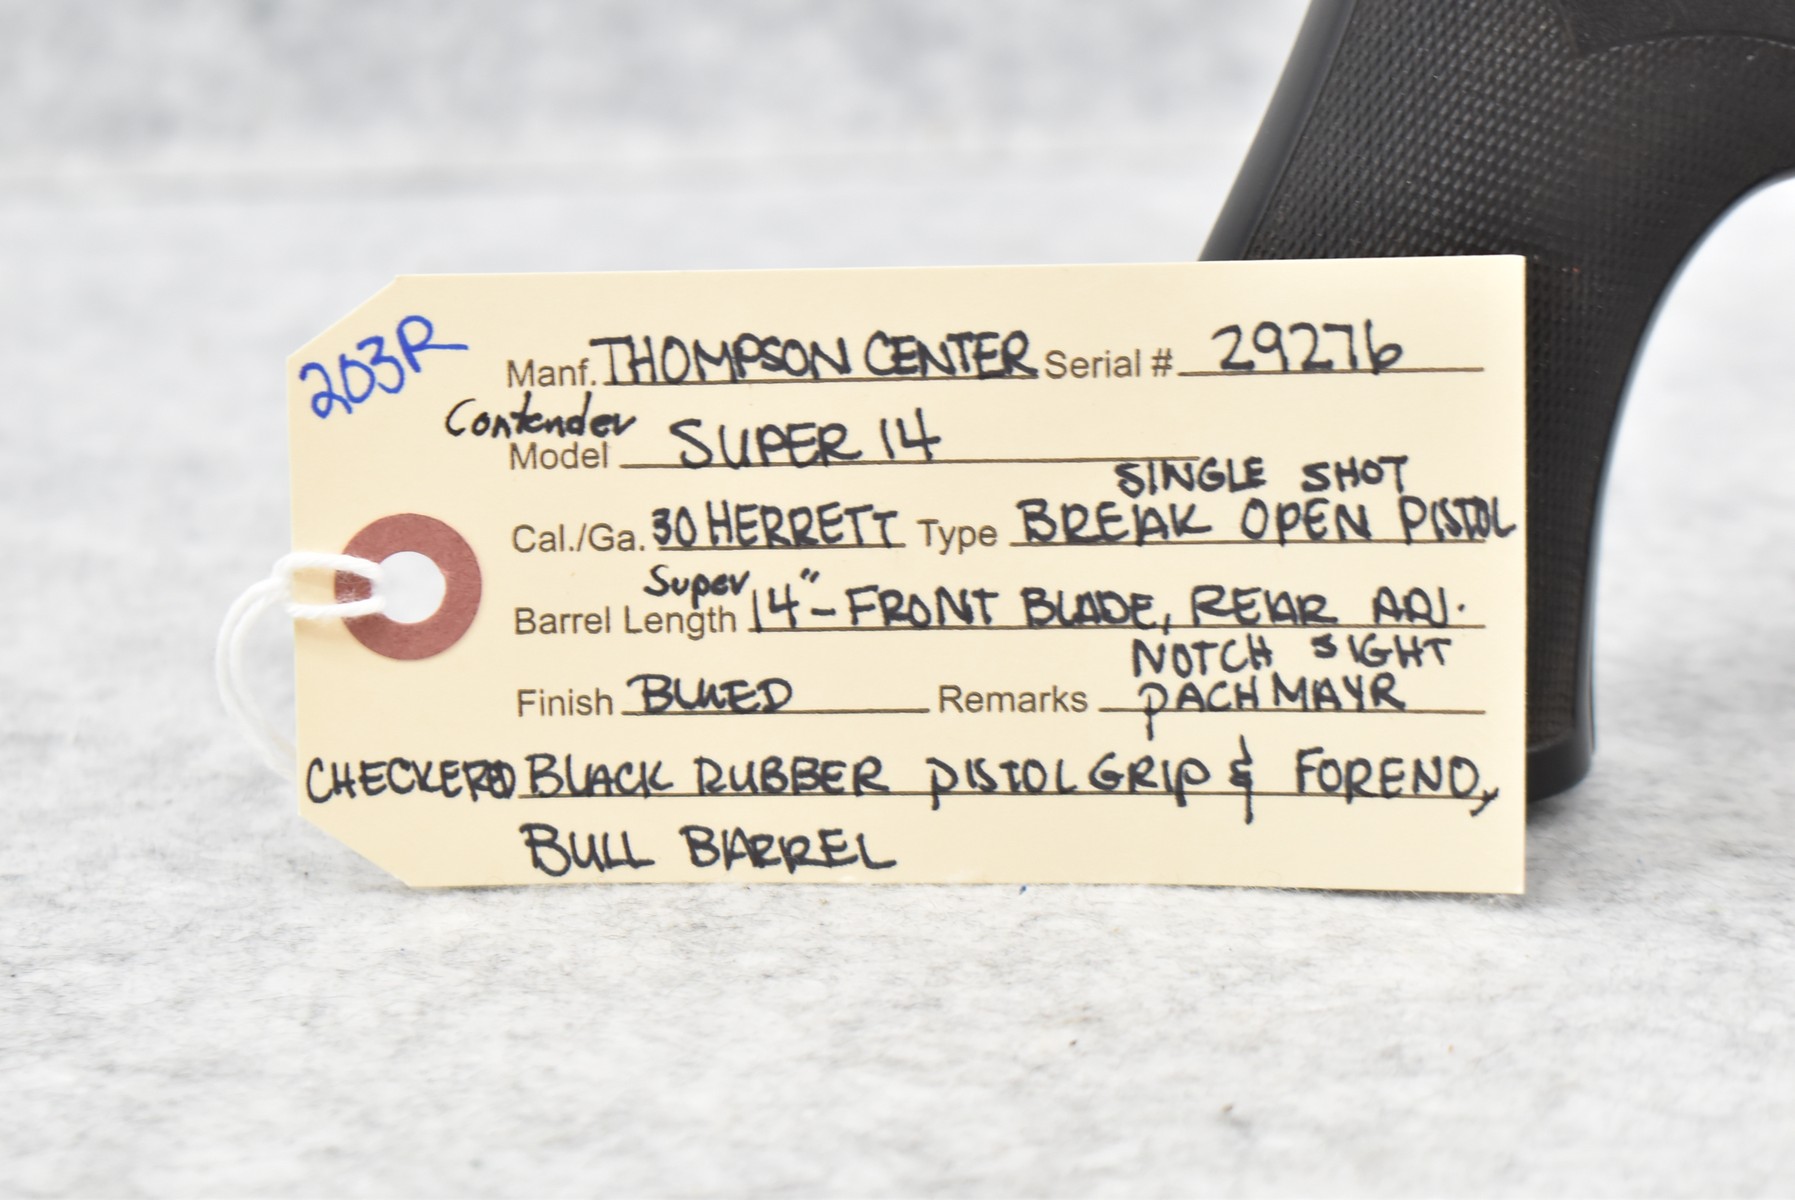 203R
Manf. THOMPSON CENTER Serial # 29276
Contender
Model SUPER 14
SINGLE SHOT
Cal./Ga. 30 HERRETT Type BREAK OPEN PISTOL
Super
Barrel Length 14" - FRONT BLADE, REAR ADJ.
NOTCH SIGHT
Finish BLUED Remarks PACHMAYR
CHECKERED BLACK RUBBER PISTOL GRIP & FOREND,
BULL BARREL